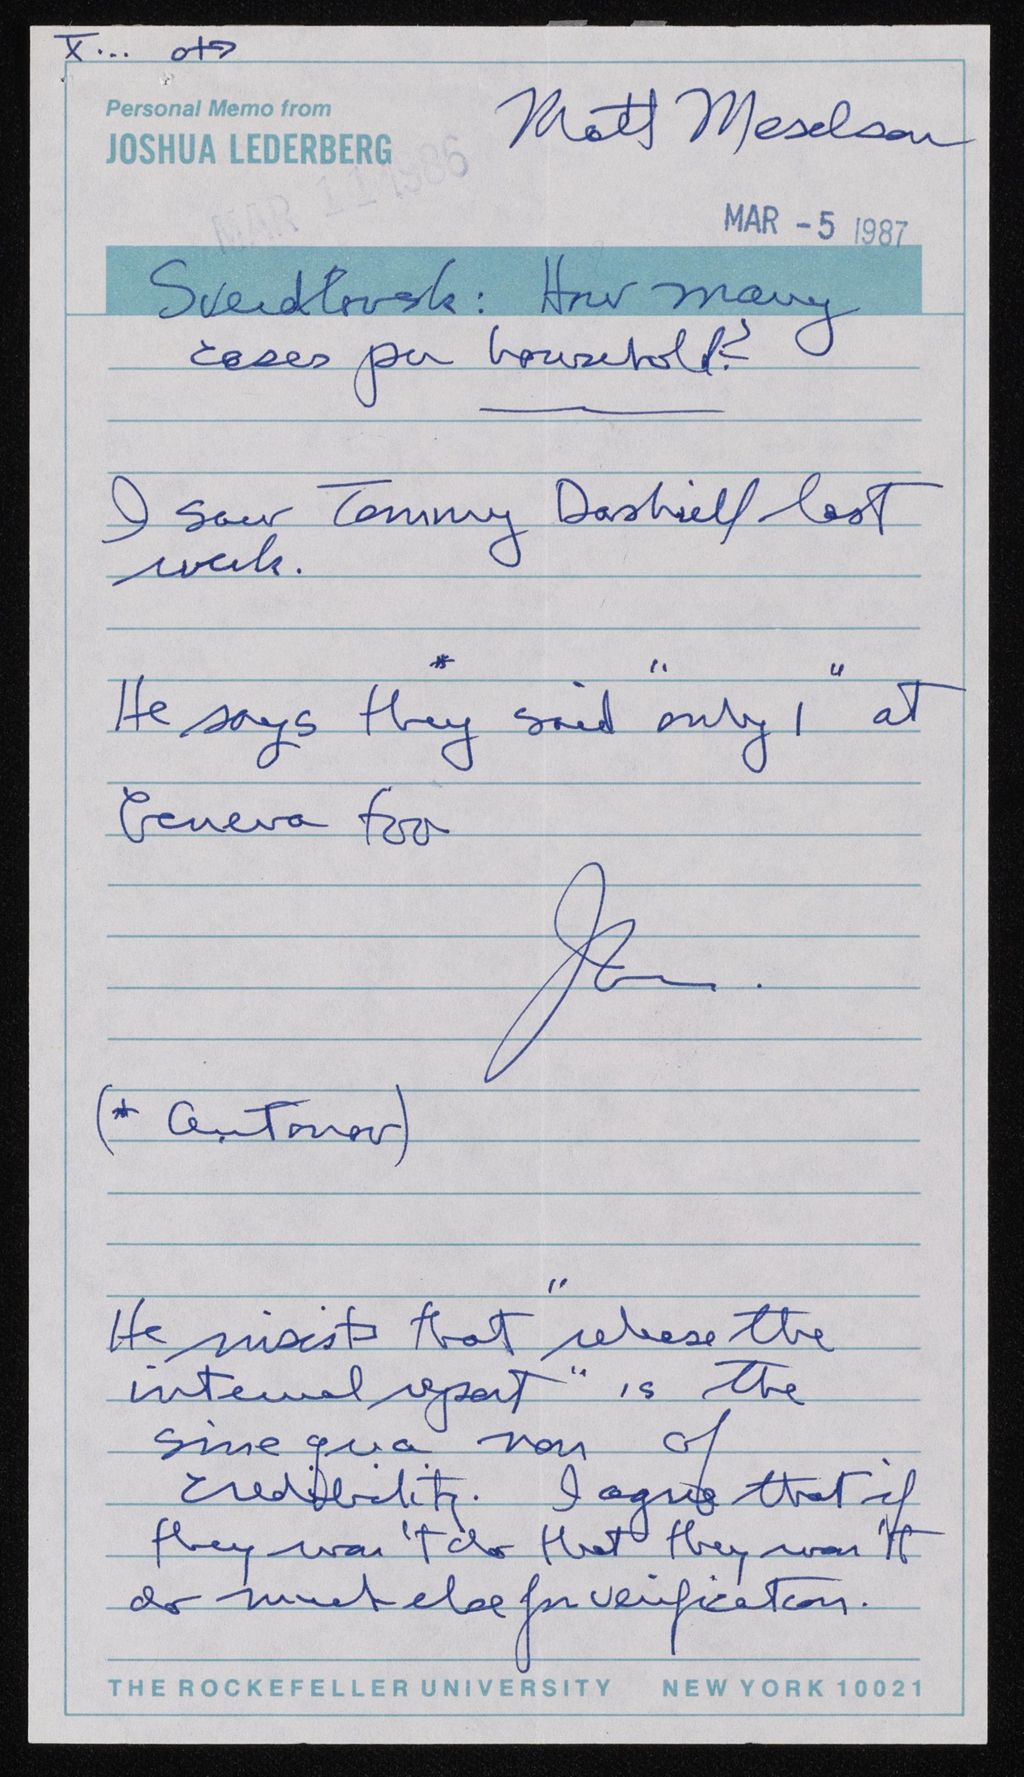 X...
Personal Memo from
JOSHUA LEDERBERG
Matt Meselson
MAR 11 1986
MAR - 5 1987
Sverdlovsk: How many
cases per household?
I saw Tommy Dashiell last
week.
He says they* said "only 1" at
Geneva too
(* Antonov)
He insists that "release the
internal report" is the
sine qua non of
credibility. I agree that if
they won't do that they won't
do much else for verification.
THE ROCKEFELLER UNIVERSITY NEW YORK 10021